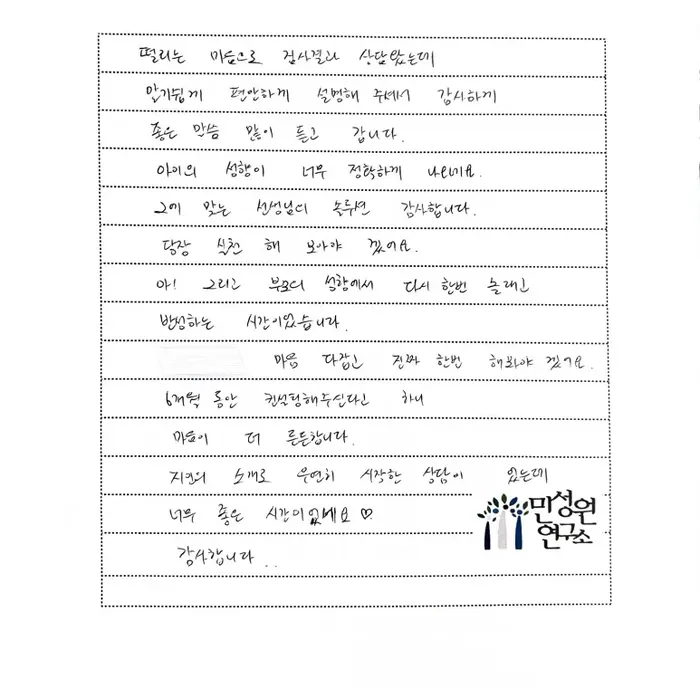 떨리는 마음으로 검사결과 상담왔는데
알기쉽게 편안하게 설명해 주셔서 감사하게
좋은 말씀 많이 듣고 갑니다.
아이의 성향이 너무 정확하게 나오네요.
그에 맞는 선생님의 솔루션 감사합니다.
당장 실천 해 보아야 겠어요.
아! 그리고 부모의 성향에서 다시 한번 놀래고
반성하는 시간이었습니다.
마음 다잡고 진짜 한번 해봐야 겠어요.
6개월 동안 컨설팅해주신다고 하니
마음이 더 든든합니다.
지인의 소개로 우연히 시작한 상담이 었는데
너무 좋은 시간이었네요 ♡
감사합니다..
민성원
연구소